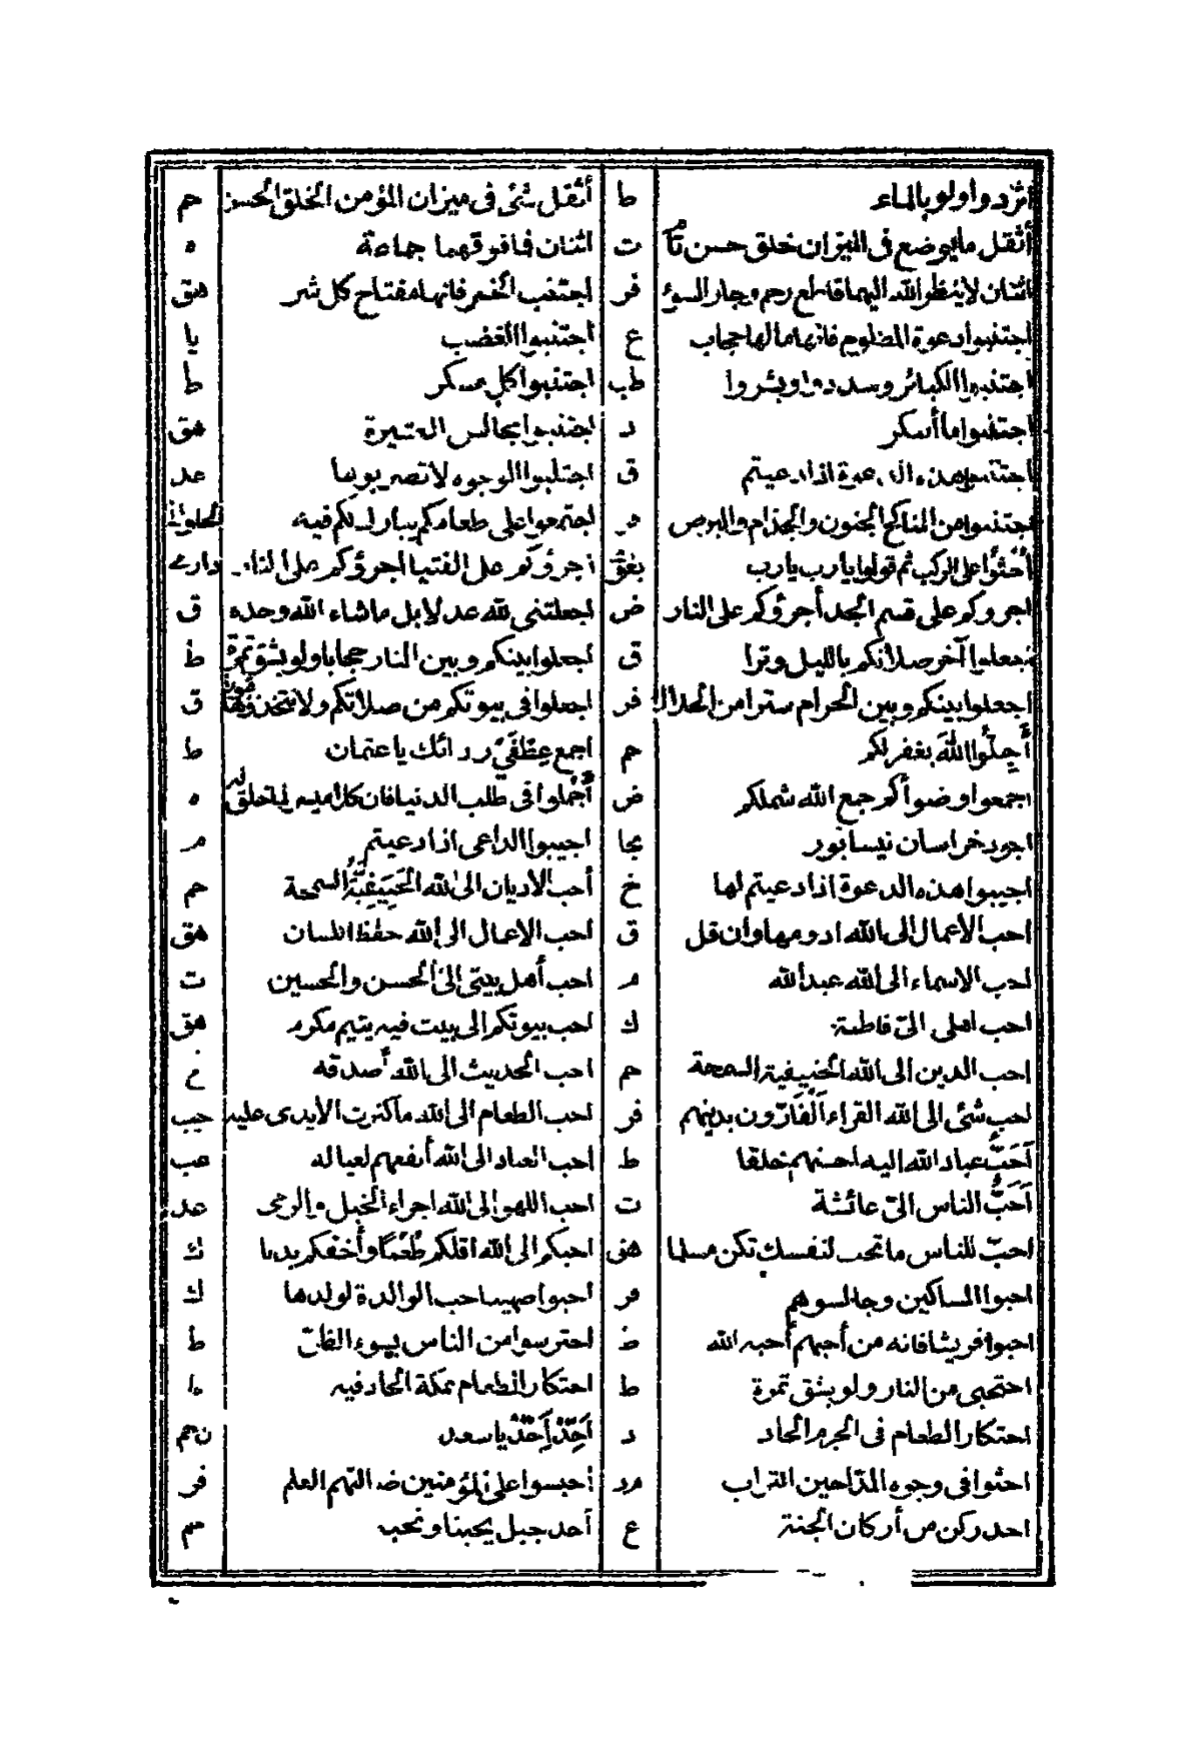 اثردوا ولو بالماء ط أثقل شئ فى ميزان المؤمن الخلق الحسن حم
أثقل ما يوضع فى الميزان خلق حسن ت اثنان فما فوقهما جماعة ه
اثنان لا ينظر الله اليهما قاطع رحم وجار السوء فر اجتنب الخمر فانها مفتاح كل شر هق
اجتنبوا دعوة المظلوم فانها ما لها حجاب ع اجتنبوا الغضب يا
اجتنبوا الكبائر وسددوا وبشروا طب اجتنبوا كل مسكر ط
اجتنبوا ما أسكر د اجتنبوا مجالس العشيرة هق
اجتنبوا هذه الدعوة اذا دعيتم ق اجتنبوا الوجوه لا تضربوها عد
اجتنبوا من المناكح الجنون والجذام والبرص اجتمعوا على طعامكم يبارك لكم فيه
أجثوا على الركب ثم قولوا يا رب يا رب اجرؤكم على الفتيا اجرؤكم على النار
اجرؤكم على قسم الجد أجرؤكم على النار ض اجعلتنى لله عدلا بل ما شاء الله وحده ق
اجعلوا آخر صلاتكم بالليل وترا ق اجعلوا بينكم وبين النار حجابا ولو بشق تمرة ط
اجعلوا بينكم وبين الحرام سترا من الحلال فر اجعلوا فى بيوتكم من صلاتكم ولا تتخذوها قبورا ق
أَجِلُّوا اللهَ يغفر لكم حم اجمع عطفى ردائك يا عثمان ط
اجمعوا وضوأكم جمع الله شملكم ض أجملوا فى طلب الدنيا فان كلا ميسر لما خلق له ه
اجود خراسان نيسابور نجا اجيبوا الداعى اذا دعيتم م
اجيبوا هذه الدعوة اذا دعيتم لها خ أحب الاديان الى الله الحنيفية السمحة حم
احب الأعمال الى الله ادومها وان قل ق احب الاعمال الى الله حفظ اللسان هق
احب الاسماء الى الله عبد الله م احب أهل بيتى الىّ الحسن والحسين ت
احب اهلى الىّ فاطمة ك احب بيوتكم الى بيت فيه يتيم مكرم هق
احب الدين الى الله الحنيفية السمحة حم احب الحديث الى الله أصدقه خ
احب شئى الى الله القراء الفارّون بدينهم فر احب الطعام الى الله ما كثرت الأيدى عليه حب
أَحَبُّ عباد الله اليه احسنهم خلقا ط احب العباد الى الله أنفعهم لعياله عب
أَحَبُّ الناس الىّ عائشة ت احب اللهو الى الله اجراء الخيل والرمى عد
احبّ للناس ما تحب لنفسك تكن مسلما هق احبكم الى الله اقلكم طُعْمًا وأخفكم بدنا ك
احبوا المساكين وجالسوهم فر أحبوا صهيبا حب الوالدة لولدها ك
احبوا قريشا فانه من أحبهم أحبه الله ض احترسوا من الناس بسوء الظنّ ط
احتجبى من النار ولو بشق تمرة ط احتكار الطعام بمكة الحاد فيه
احتكار الطعام فى الحرم الحاد د أَحِّدْ أَحِّدْ يا سعد ن حم
احثوا فى وجوه المداحين التراب أحبسوا على المؤمنين ضالتهم العلم فر
احد ركن من أركان الجنة ع أحد جبل يحبنا ونحبه حم